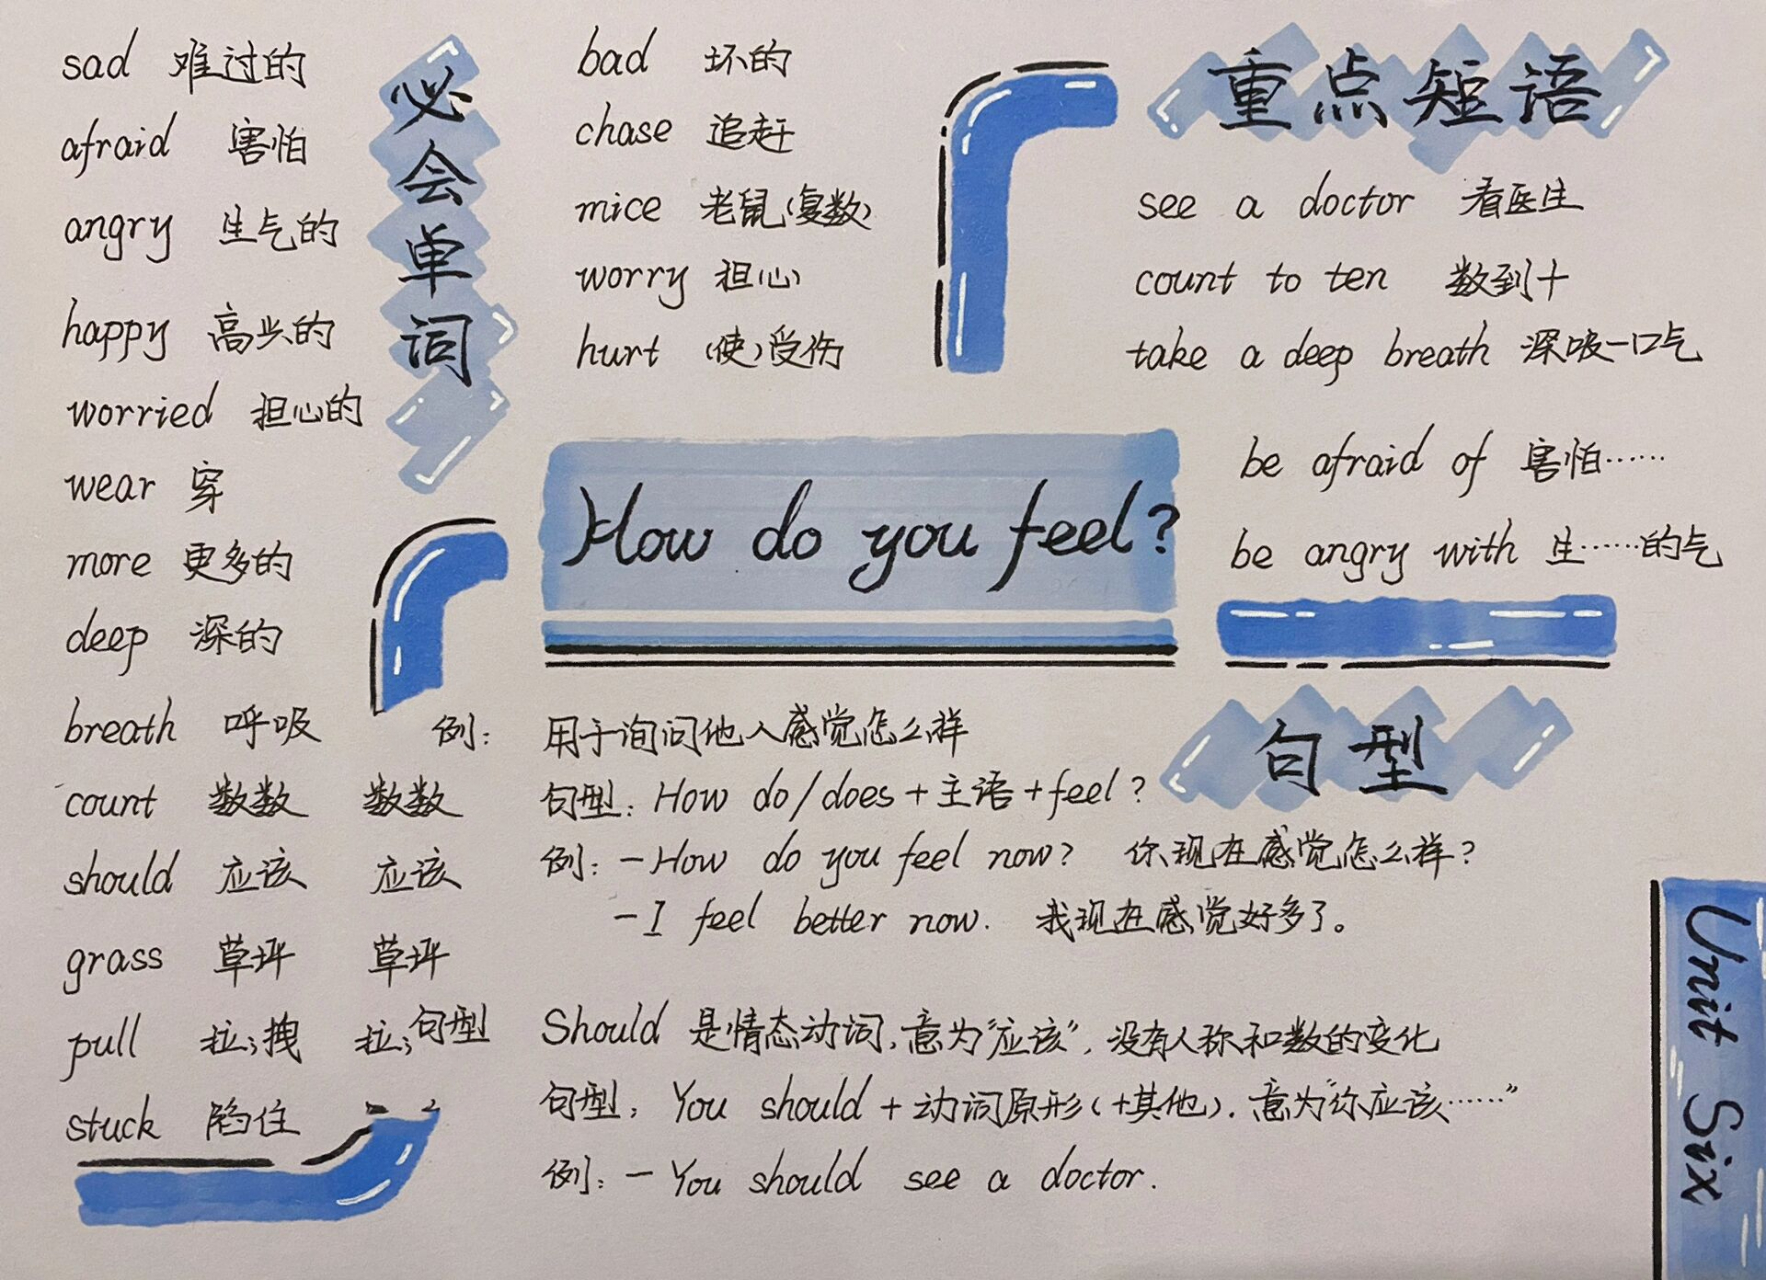 必会单词
sad 难过的
afraid 害怕
angry 生气的
happy 高兴的
worried 担心的
wear 穿
more 更多的
deep 深的
breath 呼吸
count 数数 数数
should 应该 应该
grass 草坪 草坪
pull 拉;拽 拉;
stuck 陷住
bad 坏的
chase 追赶
mice 老鼠(复数)
worry 担心
hurt (使)受伤
重点短语
see a doctor 看医生
count to ten 数到十
take a deep breath 深吸一口气
be afraid of 害怕……
be angry with 生……的气
How do you feel?
句型
例: 用于询问他人感觉怎么样
句型: How do/does+主语+feel?
例: -How do you feel now? 你现在感觉怎么样?
-I feel better now. 我现在感觉好多了。
句型 Should 是情态动词,意为"应该",没有人称和数的变化
句型: You should+动词原形(+其他).意为"你应该……"
例: -You should see a doctor.
Unit Six